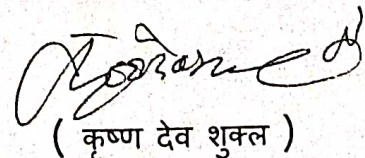 ( कृष्ण देव शुक्ल )